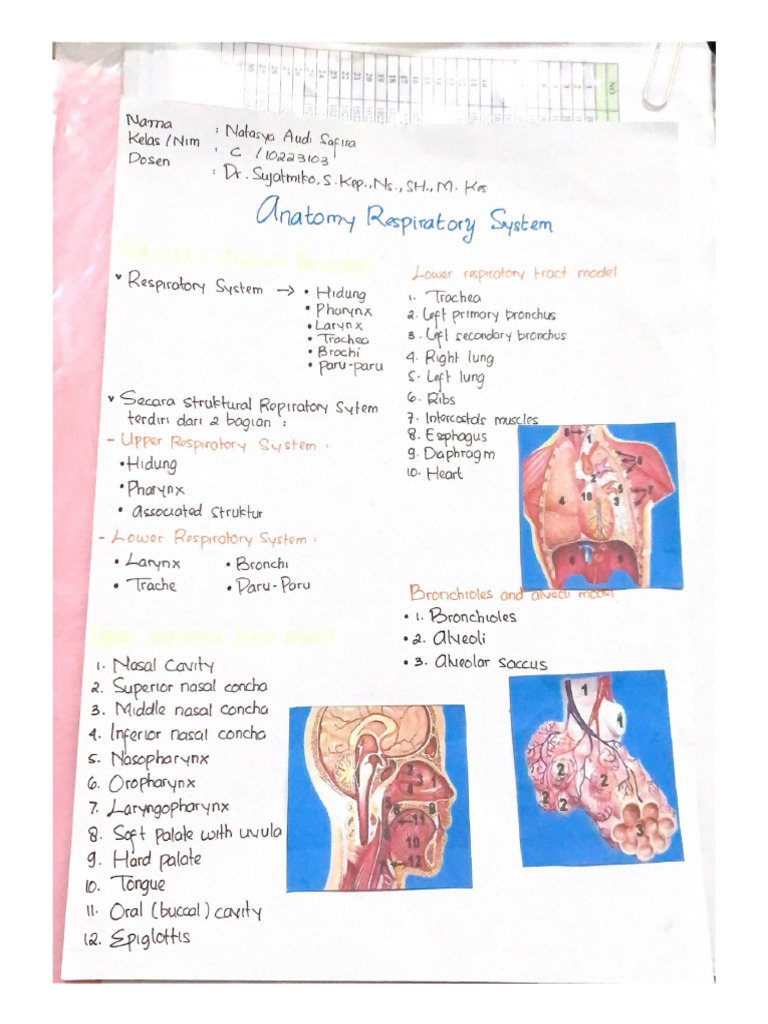 Nama : Natasya Audi Safira
Kelas/Nim : C / 10223103
Dosen : Dr. Sujatmiko, S.Kep., Ns., SH., M. Kes
Anatomy Respiratory System
Respiratory System → • Hidung
• Pharynx
• Larynx
• Trachea
• Brochi
• Paru-paru
Secara struktural Repiratory Sytem
terdiri dari 2 bagian :
- Upper Respiratory System :
• Hidung
• Pharynx
• Associated Struktur
- Lower Respiratory System :
• Larynx • Bronchi
• Trache • Paru-Paru
1. Nasal Cavity
2. Superior nasal concha
3. Middle nasal concha
4. Inferior nasal concha
5. Nasopharynx
6. Oropharynx
7. Laryngopharynx
8. Soft palate with uvula
9. Hard palate
10. Tongue
11. Oral (buccal) cavity
12. Epiglottis
Lower respiratory tract model
1. Trachea
2. Left primary bronchus
3. Left secondary bronchus
4. Right lung
5. Left lung
6. Ribs
7. Intercostals muscles
8. Esophagus
9. Diaphragm
10. Heart
Bronchioles and alveoli model
• 1. Bronchioles
• 2. Alveoli
• 3. Alveolar saccus